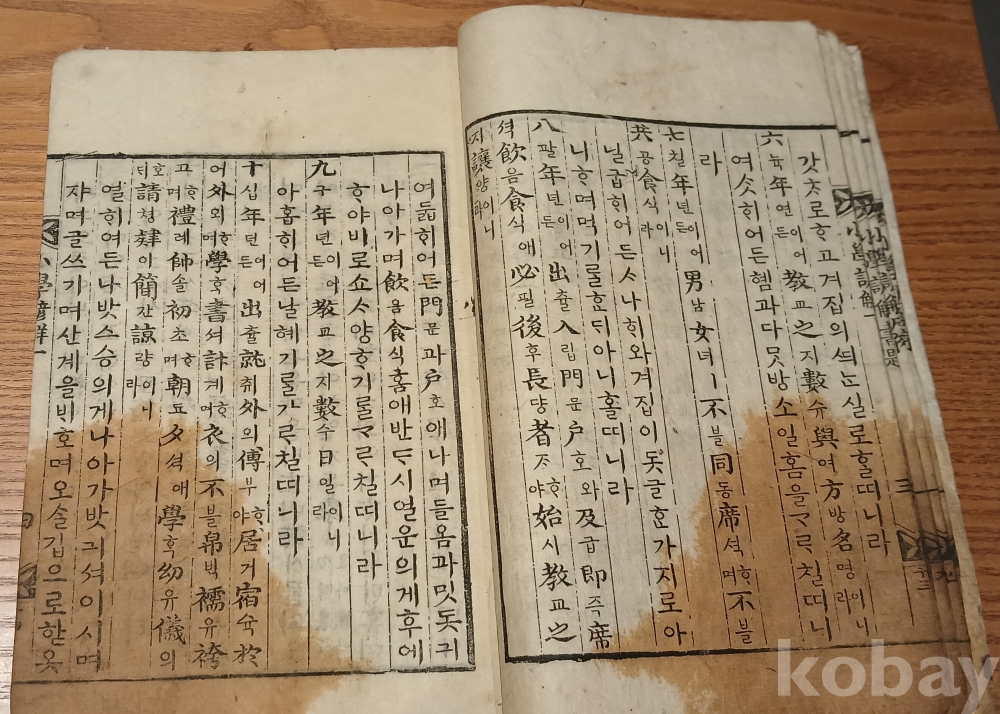 갓ᄎᆞ로ᄒᆞ고겨집의ᄯᅴᄂᆞᆫ실로홀띠니라
六륙年년이어든敎교之지數수與여方방名명이니라
여ᄉᆞᆺᄒᆡ어든혬과다ᄆᆞᆺ방소일홈을ᄀᆞᄅᆞ칠띠니
라
七칠年년이어든男남女녀ㅣ不블同동席셕ᄒᆞ며不블
共공食식이니라
닐굽ᄒᆡ어든ᄉᆞ나ᄒᆡ와겨집이돗글ᄒᆞᆫ가지로아
니ᄒᆞ며먹기ᄅᆞᆯᄒᆞᆫᄃᆡ아니홀띠니라
八팔年년이어든出츌入립門문户호와及급即즉席
셕飮음食식애必필後후長댱者쟈ᄒᆞ야始시敎교之
지讓양이니라
여ᄃᆞᆲᄒᆡ어든門문과户호애나며들옴과밋돗긔
나아가며飮음食식홈애반ᄃᆞ시얼운의게후에
ᄒᆞ야비로소ᄉᆞ양ᄒᆞ기ᄅᆞᆯᄀᆞᄅᆞ칠띠니라
九구年년이어든敎교之지數수日일이니라
아홉ᄒᆡ어든날혜기ᄅᆞᆯᄀᆞᄅᆞ칠띠니라
十십年년이어든出츌就취外외傅부ᄒᆞ야居거宿숙於
어外외ᄒᆞ며學ᄒᆞᆨ書셔計계ᄒᆞ며衣의不블帛ᄇᆡᆨ襦유袴
고ᄒᆞ며禮례帥솔初초ᄒᆞ며朝됴夕셕애學ᄒᆞᆨ幼유儀의
호ᄃᆡ請쳥肄이簡간諒량이니라
열ᄒᆡ어든나밧스승의게나아가밧긔셔이시며
자며글쓰기며산계을ᄇᆡ호며오ᄉᆞᆯ깁으로핟옷
小學諺解一
kobay